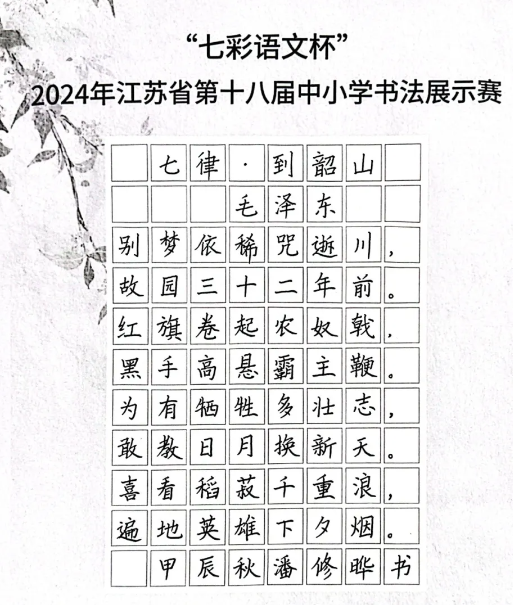 “七彩语文杯”
2024年江苏省第十八届中小学书法展示赛
七律·到韶山
毛泽东
别梦依稀咒逝川，
故园三十二年前。
红旗卷起农奴戟，
黑手高悬霸主鞭。
为有牺牲多壮志，
敢教日月换新天。
喜看稻菽千重浪，
遍地英雄下夕烟。
甲辰秋潘修晔书